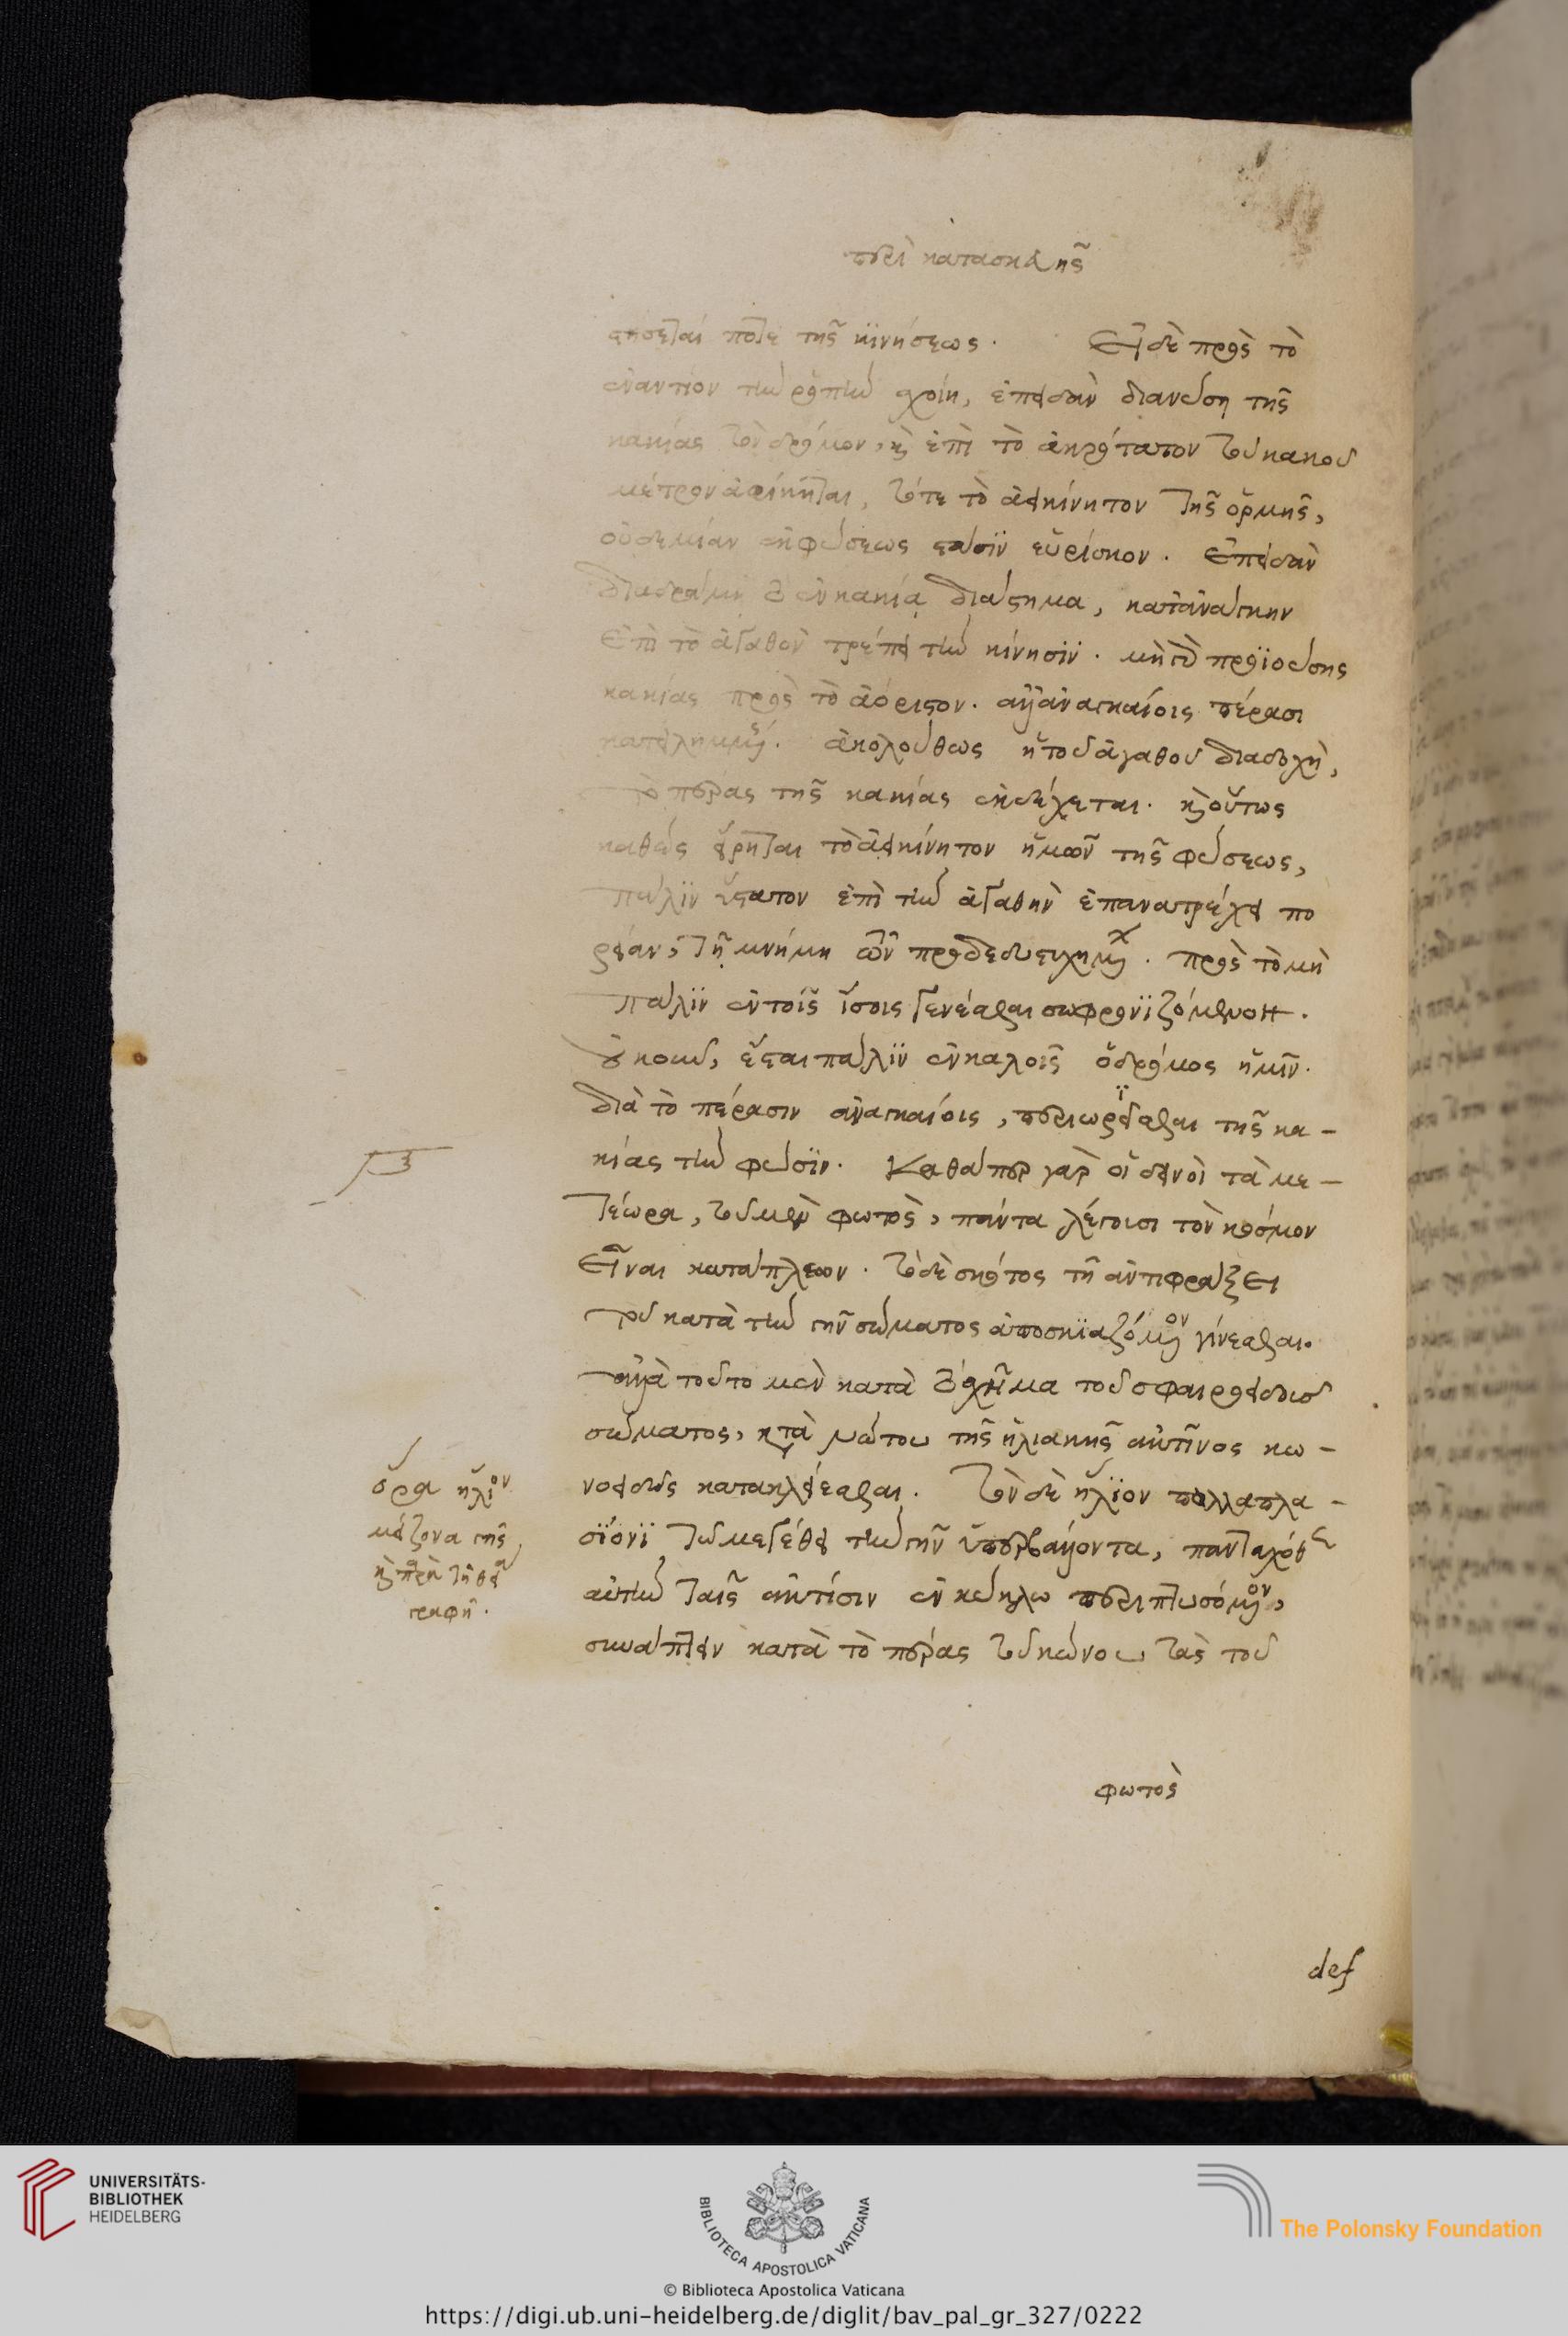 περὶ κατασκευῆς
στήσεταί ποτε τῆς κϊνήσεως. Εἰ δὲ πρὸς τὸ
ἐναντίον τὴν ῥοπὴν σχοίη, ἐπειδὰν διανύση τῆς
κακίας τὸν δρόμον, καὶ ἐπὶ τὸ ἀκρότατον τοῦ κακοῦ
μέτρον ἀφίκηται, τότε τὸ ἀεικίνητον τῆς ὁρμῆς,
οὐδεμίαν ἐκ φύσεως στάσϊν εὑρίσκον. Ἐπειδὰν
διαδράμη τὸ ἐν κακία διάστημα, κατανάγκην
Ἐπὶ τὸ ἀγαθὸν τρέπει τὴν κίνησϊν. μὴ γὰρ προϊούσης
κακίας πρὸς τὸ ἀόριστον. ἀλλ' ἀναγκαίοις πέρασι
κατειλημμένης. ἀκολούθως ἡ τοῦ ἀγαθοῦ διαδοχὴ,
τὸ πέρας τῆς κακίας ἐκδέχεται. καὶ οὕτως
καθὼς εἴρηται τὸ ἀεικίνητον ἡμῶν τῆς φύσεως,
πάλϊν ὕστατον ἐπὶ τὴν ἀγαθὴν ἐπανατρέχει πο
ρείαν, τῆ μνήμη τῶν προδεδυστυχημένων. πρὸς τὸ μὴ
πάλϊν ἐν τοῖς ἴσοις γενέσθαι σωφρονϊζόμενον.
οὐκοῦν, ἔσται πάλϊν ἐν καλοῖς ὁ δρόμος ἡμῖν.
διὰ τὸ πέρασιν ἀναγκαίοις, περιωρίσθαι τῆς κα-
κίας τὴν φύσϊν. Καθάπερ γὰρ οἱ δεινοὶ τὰ με-
τέωρα, τοῦ μὲν φωτὸς, πάντα λέγουσι τὸν κόσμον
Εἶναι κατάπλεων. τὸ δὲ σκότος τῆ ἀντιφράξει
τοῦ κατὰ τὴν γῆν σώματος ἀποσκϊαζόμενον γίνεσθαι.
ἀλλὰ τοῦτο μὲν κατὰ τὸ σχῆμα τοῦ σφαιροειδοῦς
σώματος, κατὰ νώτου τῆς ἡλιακῆς ἀκτῖνος κω-
νοειδῶς κατακλείεσθαι. τὸν δὲ ἥλϊον πολλαπλα-
σϊόνϊ τῶ μεγέθει τὴν γῆν ὑπερβάλλοντα, πανταχόθεν
αὐτὴν ταῖς ἀκτίσιν ἐν κύκλω περιπτυσόμενον,
συνάπτειν κατὰ τὸ πέρας τοῦ κώνου τὰς τοῦ
φωτὸς
ὅρα ἥλϊον
μείζονα γῆς
καὶ παρὰ τῆ θεία
γραφῆ.
def
UNIVERSITÄTS-
BIBLIOTHEK
HEIDELBERG
BIBLIOTECA APOSTOLICA VATICANA
The Polonsky Foundation
© Biblioteca Apostolica Vaticana
https://digi.ub.uni-heidelberg.de/diglit/bav_pal_gr_327/0222